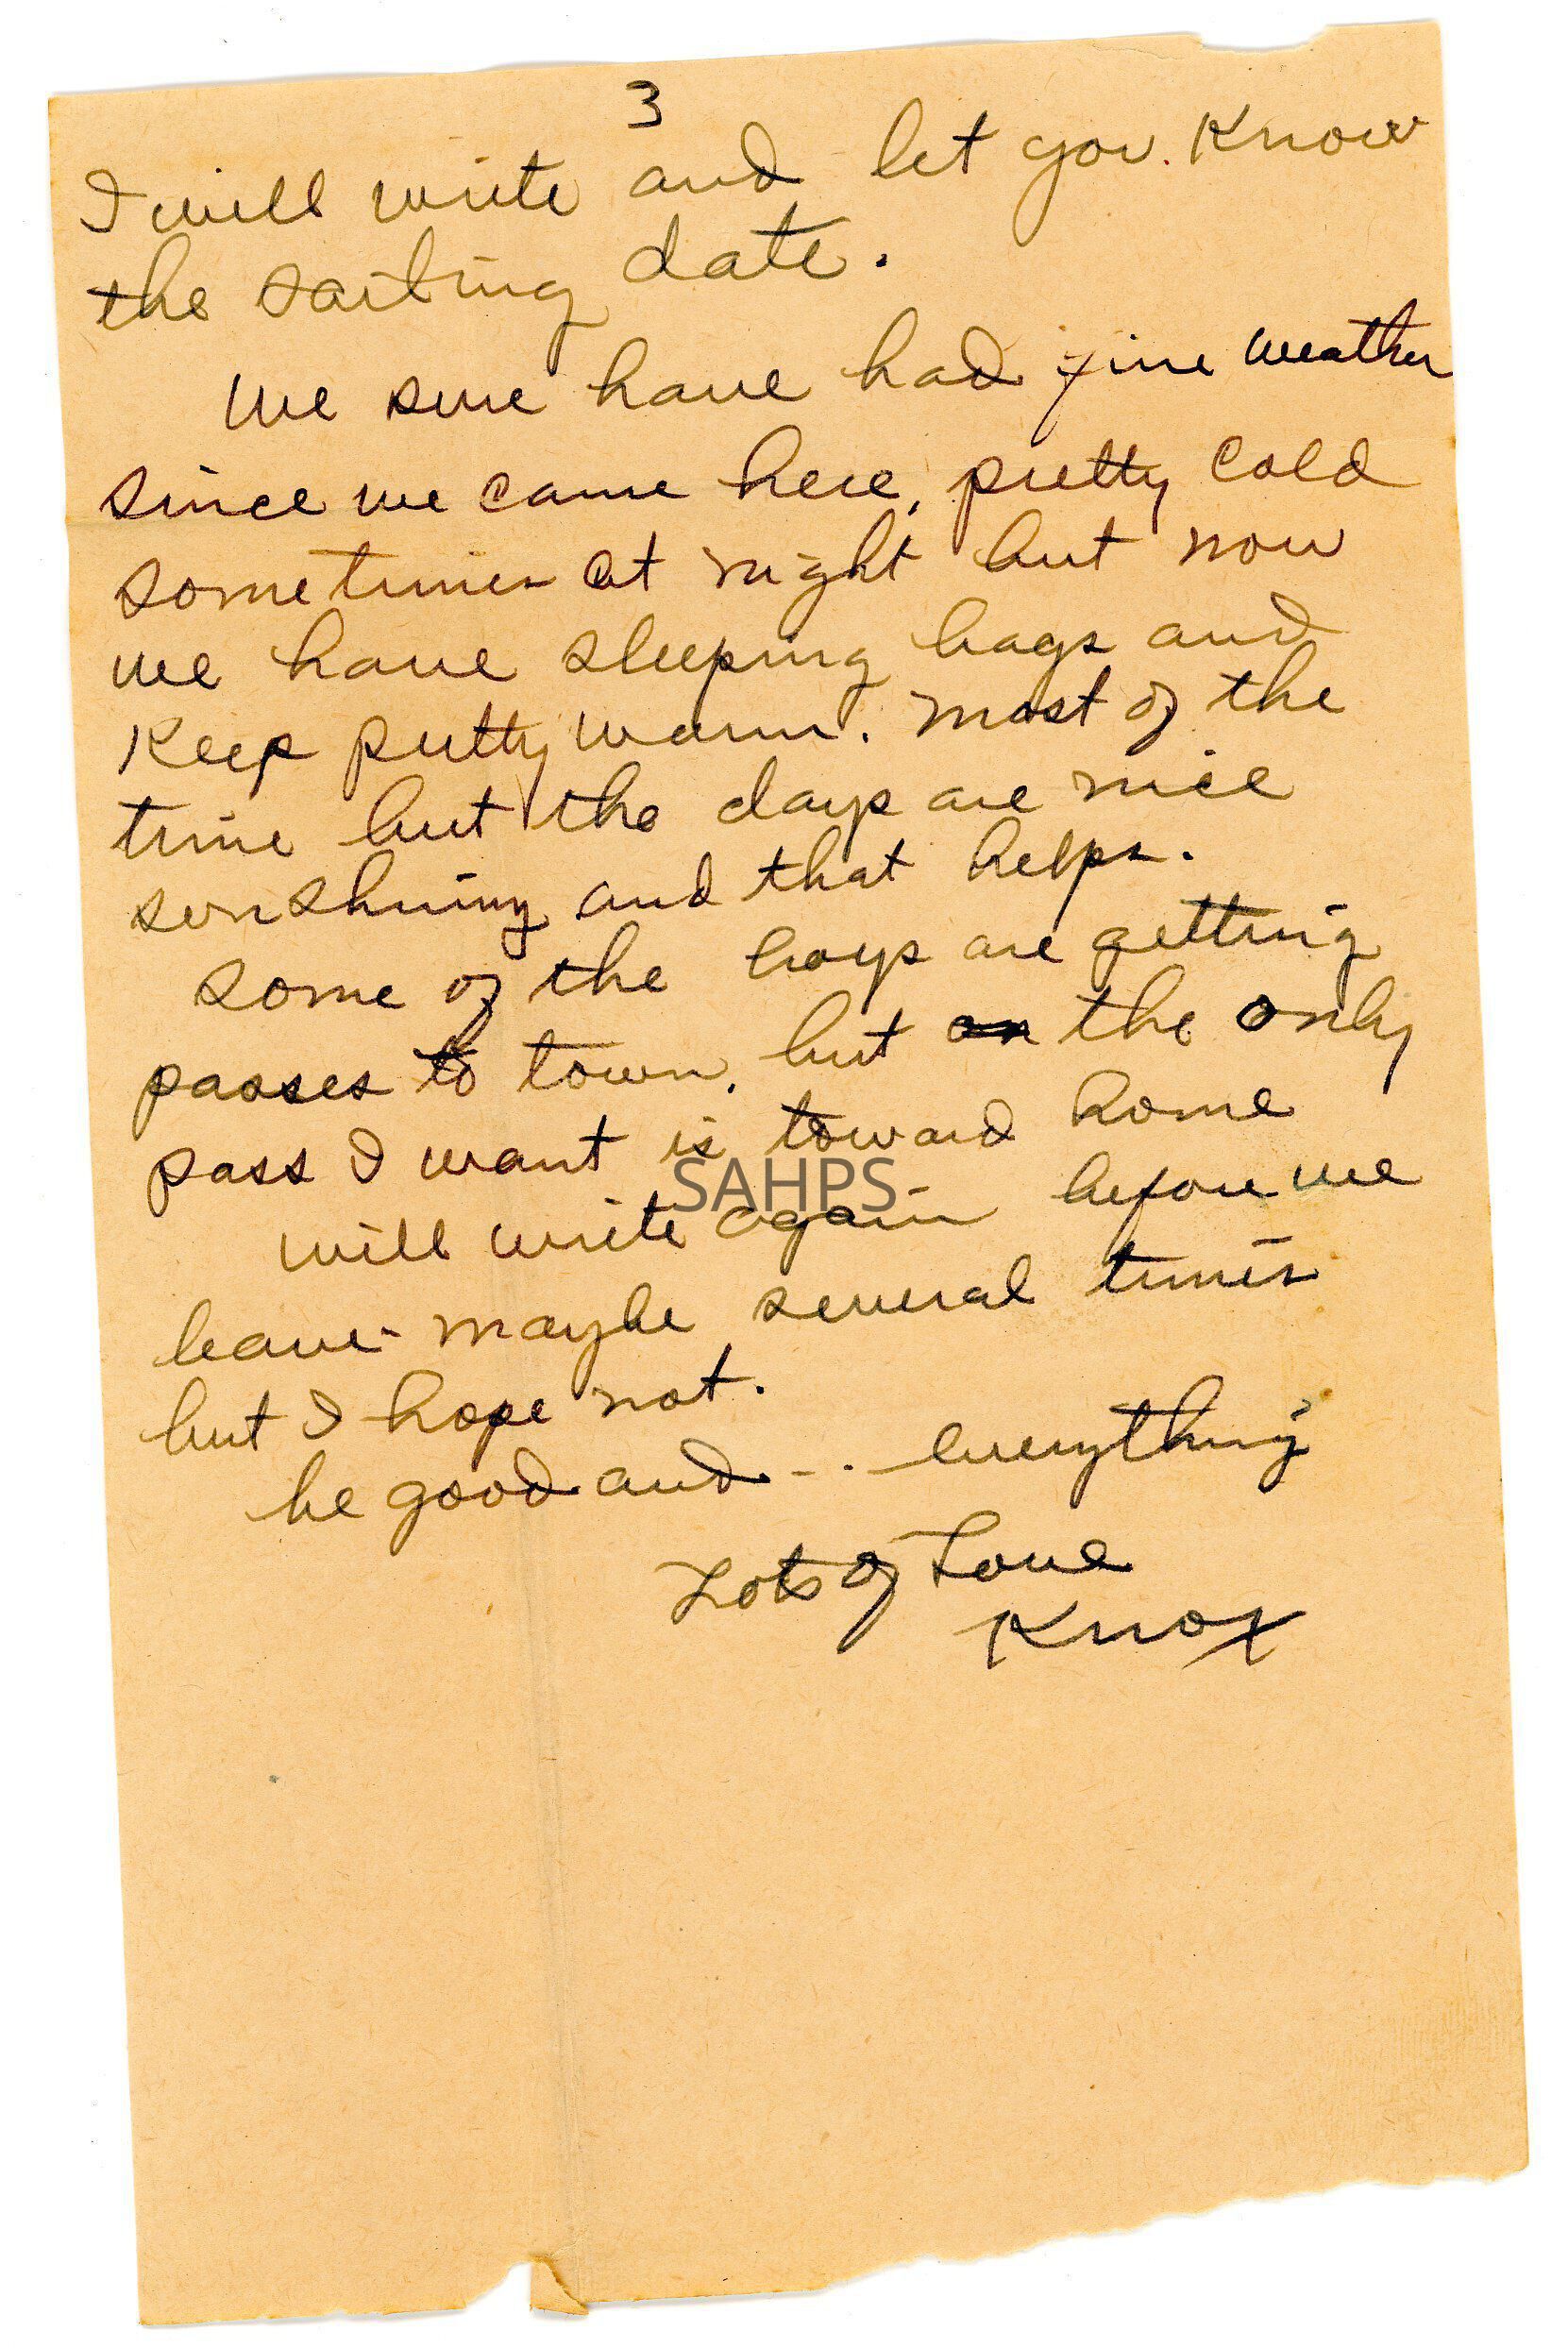 3
I will write and let you know
the sailing date.
We sure have had fine weather
since we came here, pretty cold
sometimes at night but now
we have sleeping bags and
Keep pretty warm. most of the
time but the days are nice
sunshining and that helps.
some of the boys are getting
passes to town, but on the only
pass I want is toward home
SAHPS
will write again before we
leave - maybe several times
but I hope not.
be good and - . . everything
Lots of Love
Knox